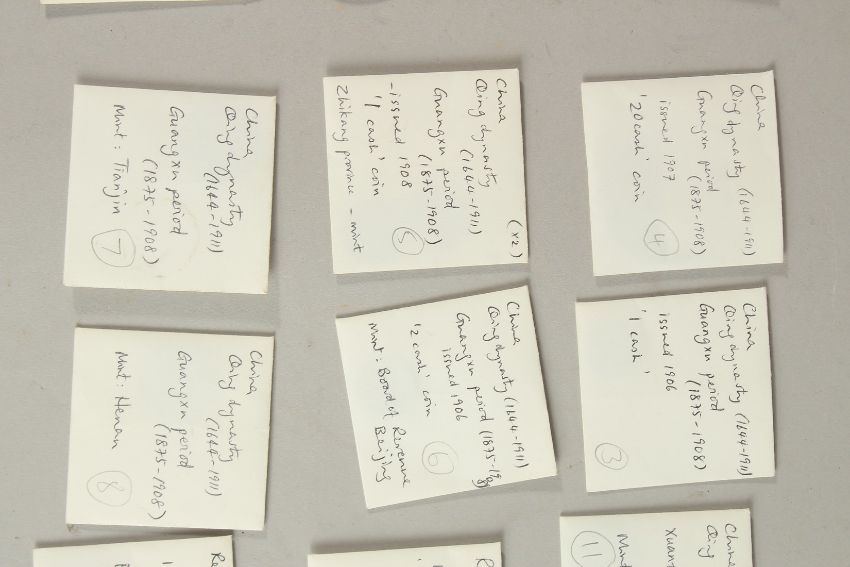 China
Qing dynasty
(1644-1911)
Guangxu period
(1875-1908)
Mint: Tianjin
7
(x2)
China
Qing dynasty
(1644-1911)
Guangxu period
(1875-1908)
-issued 1908
'1 cash' coin
Zhikang province - mint
5
China
Qing dynasty (1644-1911)
Guangxu period
(1875-1908)
issued 1907
'20 cash' coin
4
China
Qing dynasty
(1644-1911)
Guangxu period
(1875-1908)
Mint: Henan
8
China
Qing dynasty (1644-1911)
Guangxu period (1875-1908)
issued 1906
'2 cash' coin
Mint: Board of Revenue
Beijing
6
China
Qing dynasty (1644-1911)
Guangxu period
(1875-1908)
issued 1906
'1 cash'
3
China
Qing
Xuan
Mint
11